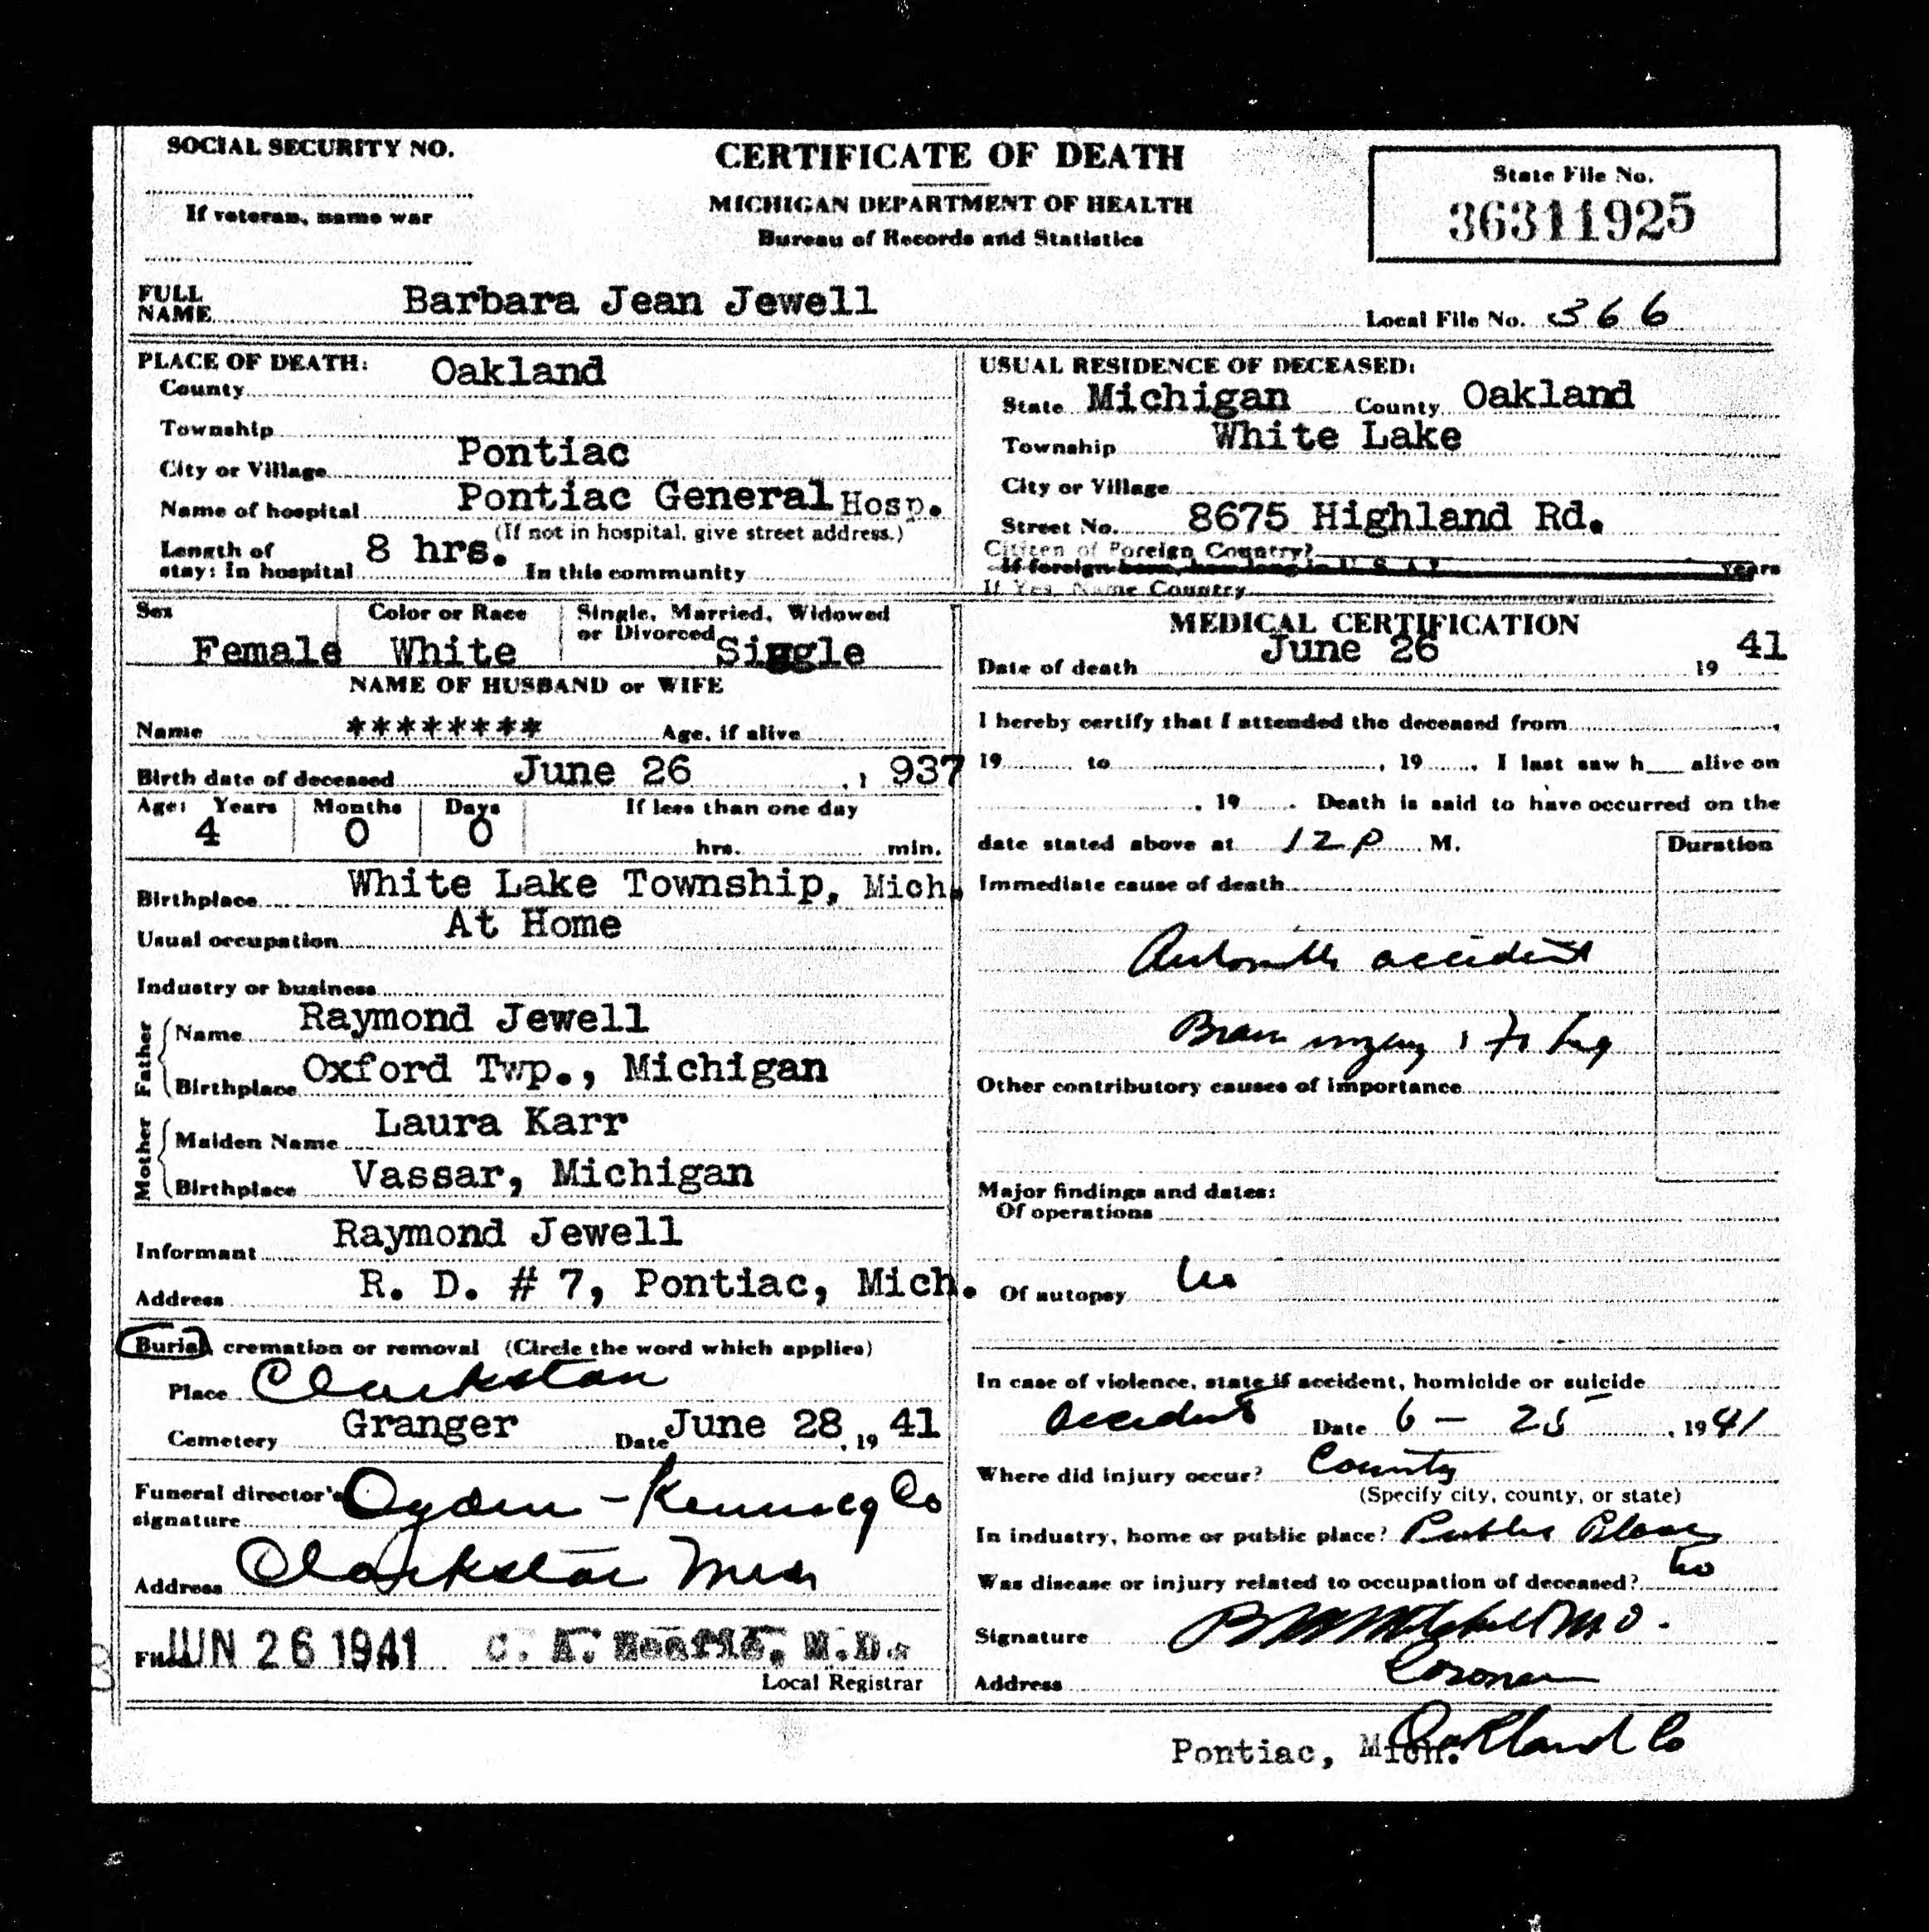 SOCIAL SECURITY NO.
If veteran, name war
CERTIFICATE OF DEATH
MICHIGAN DEPARTMENT OF HEALTH
Bureau of Records and Statistics
State File No.
36311925
FULL NAME Barbara Jean Jewell
Local File No. 366
PLACE OF DEATH:
County Oakland
Township
City or Village Pontiac
Name of hospital Pontiac General Hosp.
(If not in hospital, give street address.)
Length of stay: In hospital 8 hrs. In this community
USUAL RESIDENCE OF DECEASED:
State Michigan County Oakland
Township White Lake
City or Village
Street No. 8675 Highland Rd.
Citizen of Foreign Country?
If foreign born, how long in U. S. A.? years
If Yes, Name Country
Sex Female
Color or Race White
Single, Married, Widowed or Divorced Single
NAME OF HUSBAND or WIFE
Name ******** Age, if alive
Birth date of deceased June 26, 1 937
Age: Years 4 Months 0 Days 0 If less than one day
hrs. min.
Birthplace White Lake Township, Mich.
Usual occupation At Home
Industry or business
Father
Name Raymond Jewell
Birthplace Oxford Twp., Michigan
Mother
Maiden Name Laura Karr
Birthplace Vassar, Michigan
Informant Raymond Jewell
Address R. D. # 7, Pontiac, Mich.
Burial, cremation or removal (Circle the word which applies)
Place Clarkston
Cemetery Granger Date June 28, 19 41
Funeral director's signature Ogden - Co
Address Clarkston Mich
Filed JUN 26 1941 C. A. M.D.
Local Registrar
MEDICAL CERTIFICATION
Date of death June 26 19 41
I hereby certify that I attended the deceased from ,
19 to , 19 , I last saw h alive on
, 19 . Death is said to have occurred on the
date stated above at 12 P M.
Duration
Immediate cause of death
accident
Brain injury
Other contributory causes of importance
Major findings and dates:
Of operations
Of autopsy No
In case of violence, state if accident, homicide or suicide
Accident Date 6 - 25, 19 41
Where did injury occur? County
(Specify city, county, or state)
In industry, home or public place? Public Place
Was disease or injury related to occupation of deceased? No
Signature M.D.
Address Coroner
Pontiac, Mich. Oakland Co